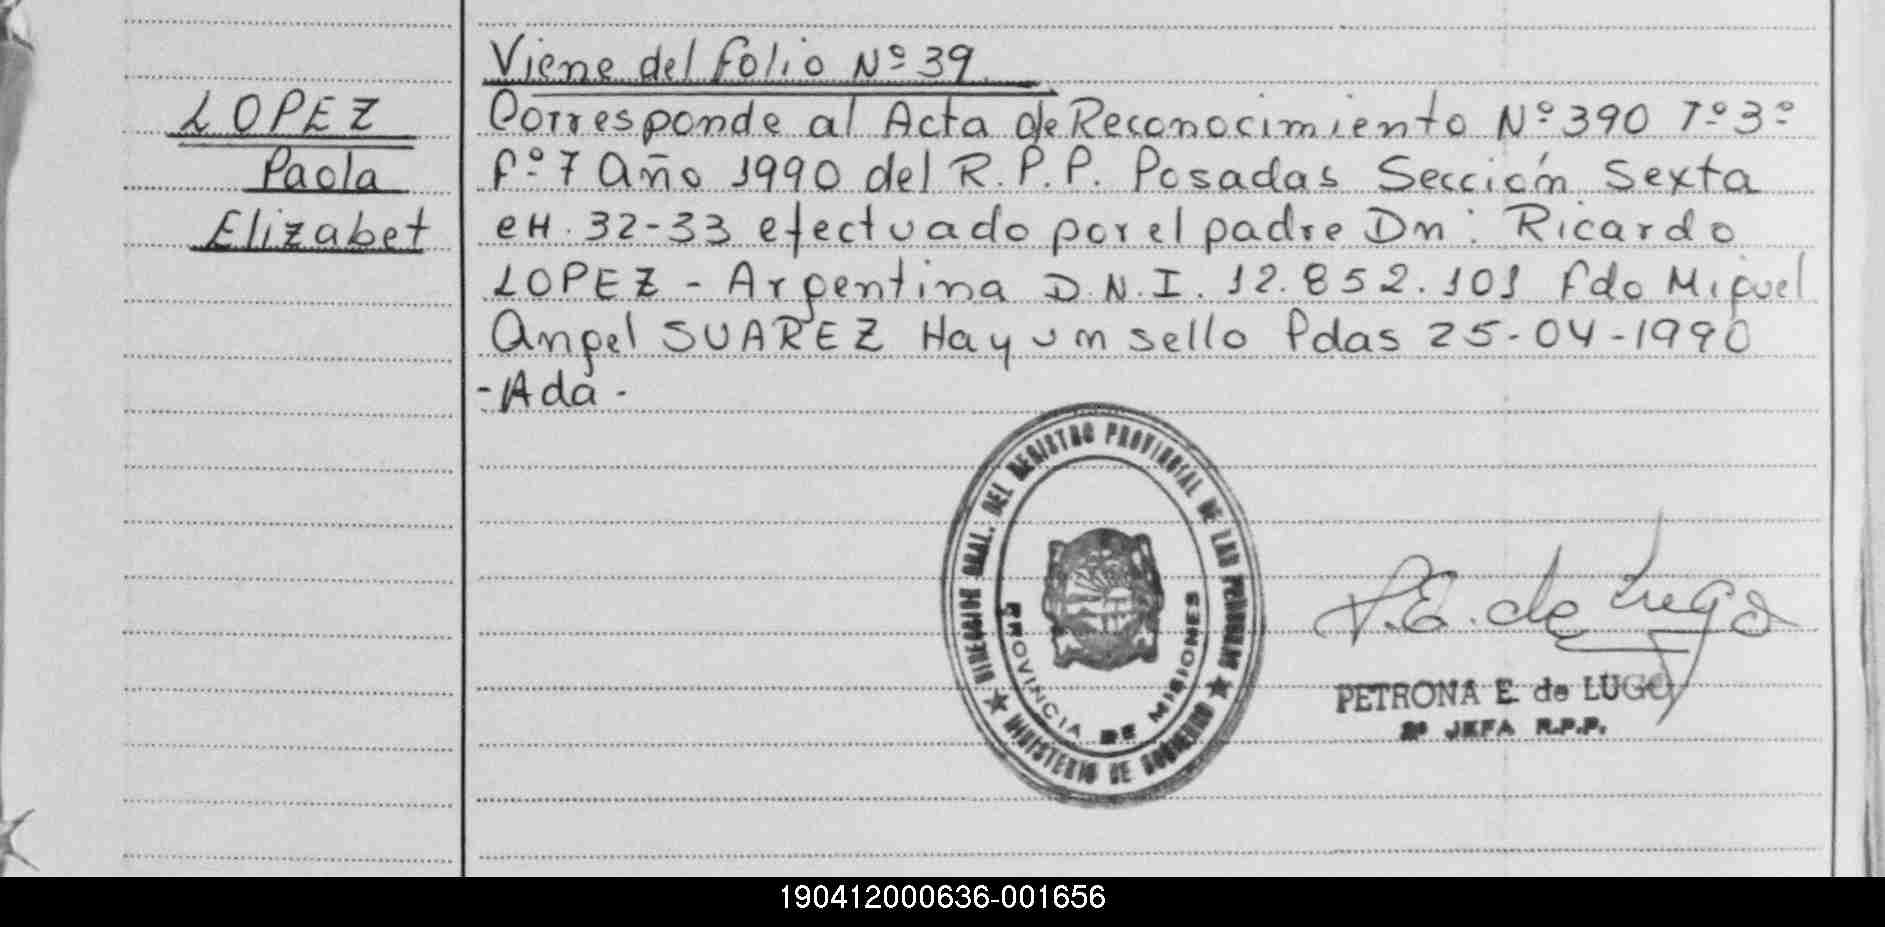 Viene del folio Nº 39
LOPEZ
Paola
Elizabet
Corresponde al Acta de Reconocimiento Nº 390 Tº 3º
fº 7 Año 1990 del R.P.P. Posadas Sección Sexta
eH. 32-33 efectuado por el padre Dn: Ricardo
LOPEZ - Argentina D.N.I. 12.852.101 fdo Miguel
Angel SUAREZ Hay un sello Pdas 25-04-1990
- Ada -
DIRECCION GRAL. DEL REGISTRO PROVINCIAL DE LAS PERSONAS
PROVINCIA DE MISIONES
★ MINISTERIO DE GOBIERNO ★
P.E. de Lugo
PETRONA E. de LUGO
2º JEFA R.P.P.
190412000636-001656